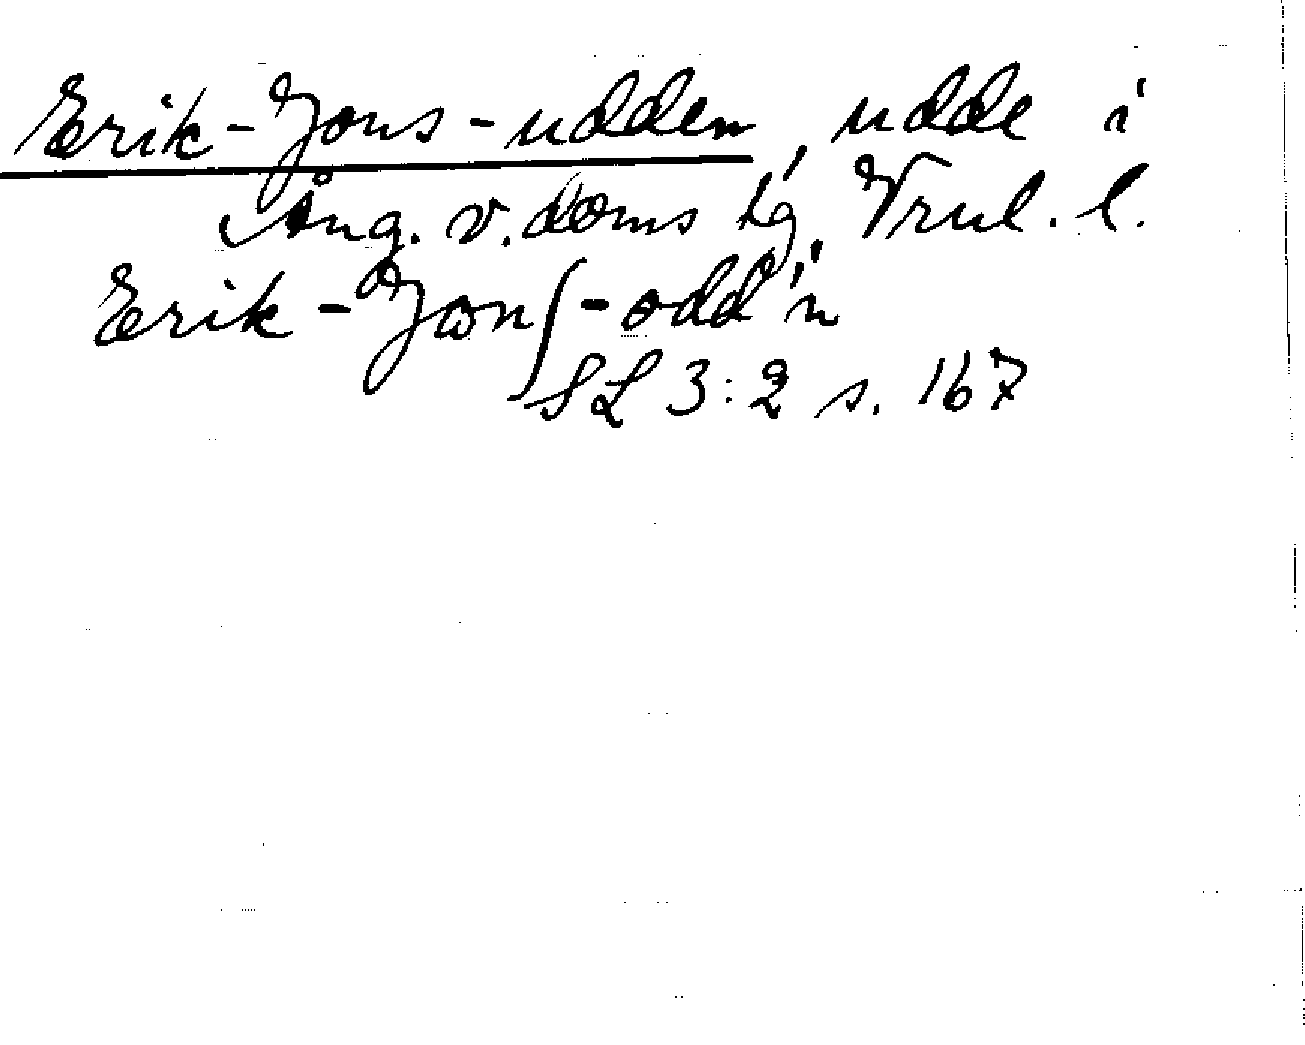 Erik-Jons-udden, udde i
Ång. v. doms hg, Vrul. l.
Erik-Jonʃ-odd'n
SL 3:2 s. 167